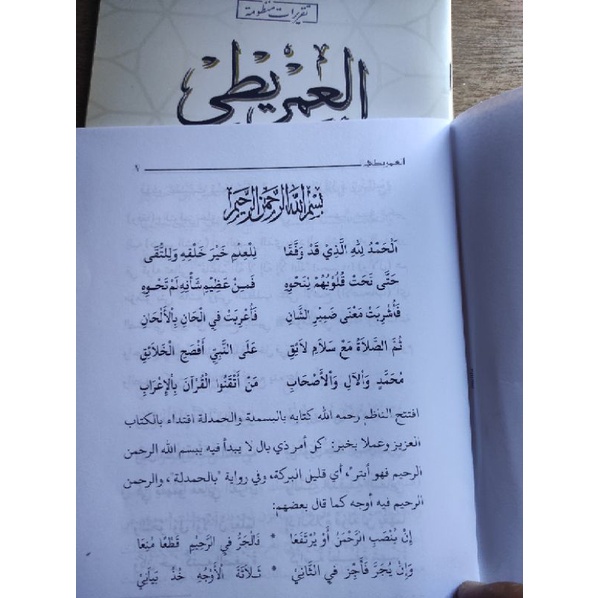 تقريرات منظومة
العمريطي
العمريطي ٦
بسم الله الرحمن الرحيم
اَلْحَمْدُ لِلّٰهِ الَّذِيْ قَدْ وَفَّقَا لِلْعِلْمِ خَيْرَ خَلْقِهِ وَلِلتُّقَى
حَتَّى نَحَتْ قُلُوْبُهُمْ لِنَحْوِهِ فَمِنْ عَظِيْمِ شَأْنِهِ لَمْ تَحْوِهِ
فَأُشْرِبَتْ مَعْنَى ضَمِيْرِ الشَّانِ فَأُعْرِبَتْ فِي الْحَانِ بِالْأَلْحَانِ
ثُمَّ الصَّلَاةُ مَعَ سَلَامٍ لَائِقِ عَلَى النَّبِيِّ أَفْصَحِ الْخَلَائِقِ
مُحَمَّدٍ وَالْآلِ وَالْأَصْحَابِ مَنْ أَتْقَنُوا الْقُرْآنَ بِالْإِعْرَابِ
افتتح الناظم رحمه الله كتابه بالبسمة والحمدلة اقتداء بالكتاب
العزيز وعملا بخبر: كل أمر ذي بال لا يبدأ فيه ببسم الله الرحمن
الرحيم فهو أبتر، أي قليل البركة، وفي رواية "بالحمدلة"، والرحمن
الرحيم فيه أوجه كما قال بعضهم:
إِنْ يُنْصَبِ الرَّحْمٰنُ أَوْ يَرْتَفِعَا * فَالْجَرُّ فِي الرَّحِيْمِ قَطْعًا مُنِعَا
وَإِنْ يُجَرَّ فَأَجِزْ فِي الثَّانِيْ * ثَلَاثَةَ الْأَوْجُهِ خُذْ بَيَانِيْ